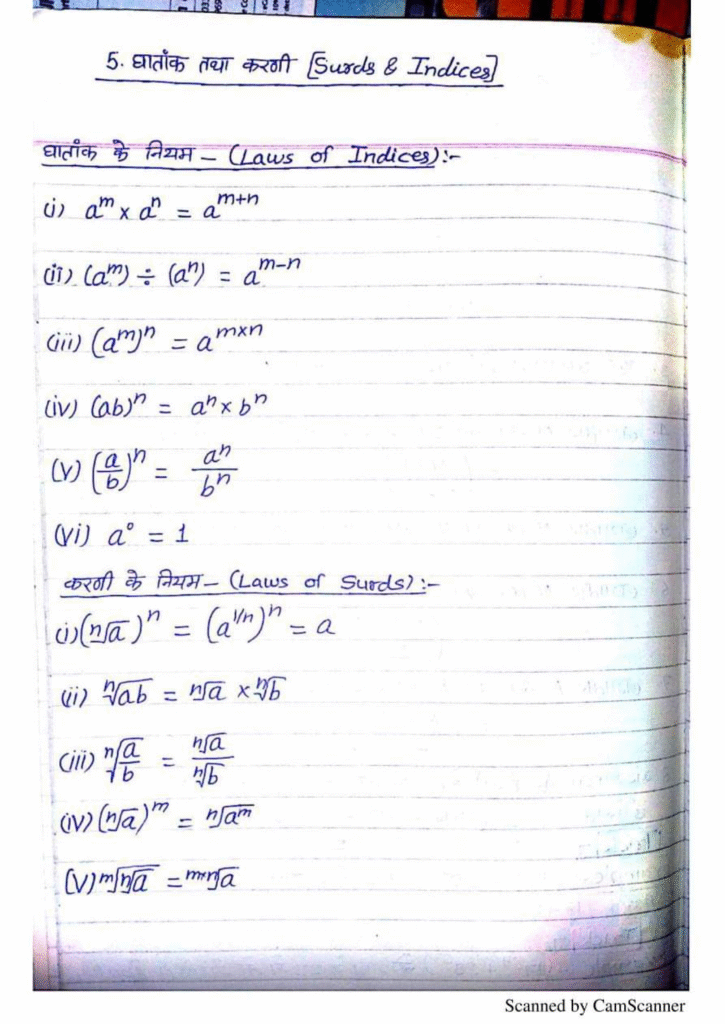 5. घातांक तथा करणी [Surds & Indices]
घातांक के नियम – (Laws of Indices):-
(i) a^m × a^n = a^(m+n)
(ii) (a^m) ÷ (a^n) = a^(m-n)
(iii) (a^m)^n = a^(m×n)
(iv) (ab)^n = a^n × b^n
(v) (a/b)^n = a^n/b^n
(vi) a° = 1
करणी के नियम – (Laws of Surds):-
(i) (ⁿ√a)^n = (a^(1/n))^n = a
(ii) ⁿ√ab = ⁿ√a × ⁿ√b
(iii) ⁿ√(a/b) = ⁿ√a/ⁿ√b
(iv) (ⁿ√a)^m = ⁿ√a^m
(v) ᵐ√ⁿ√a = ᵐˣⁿ√a
Scanned by CamScanner